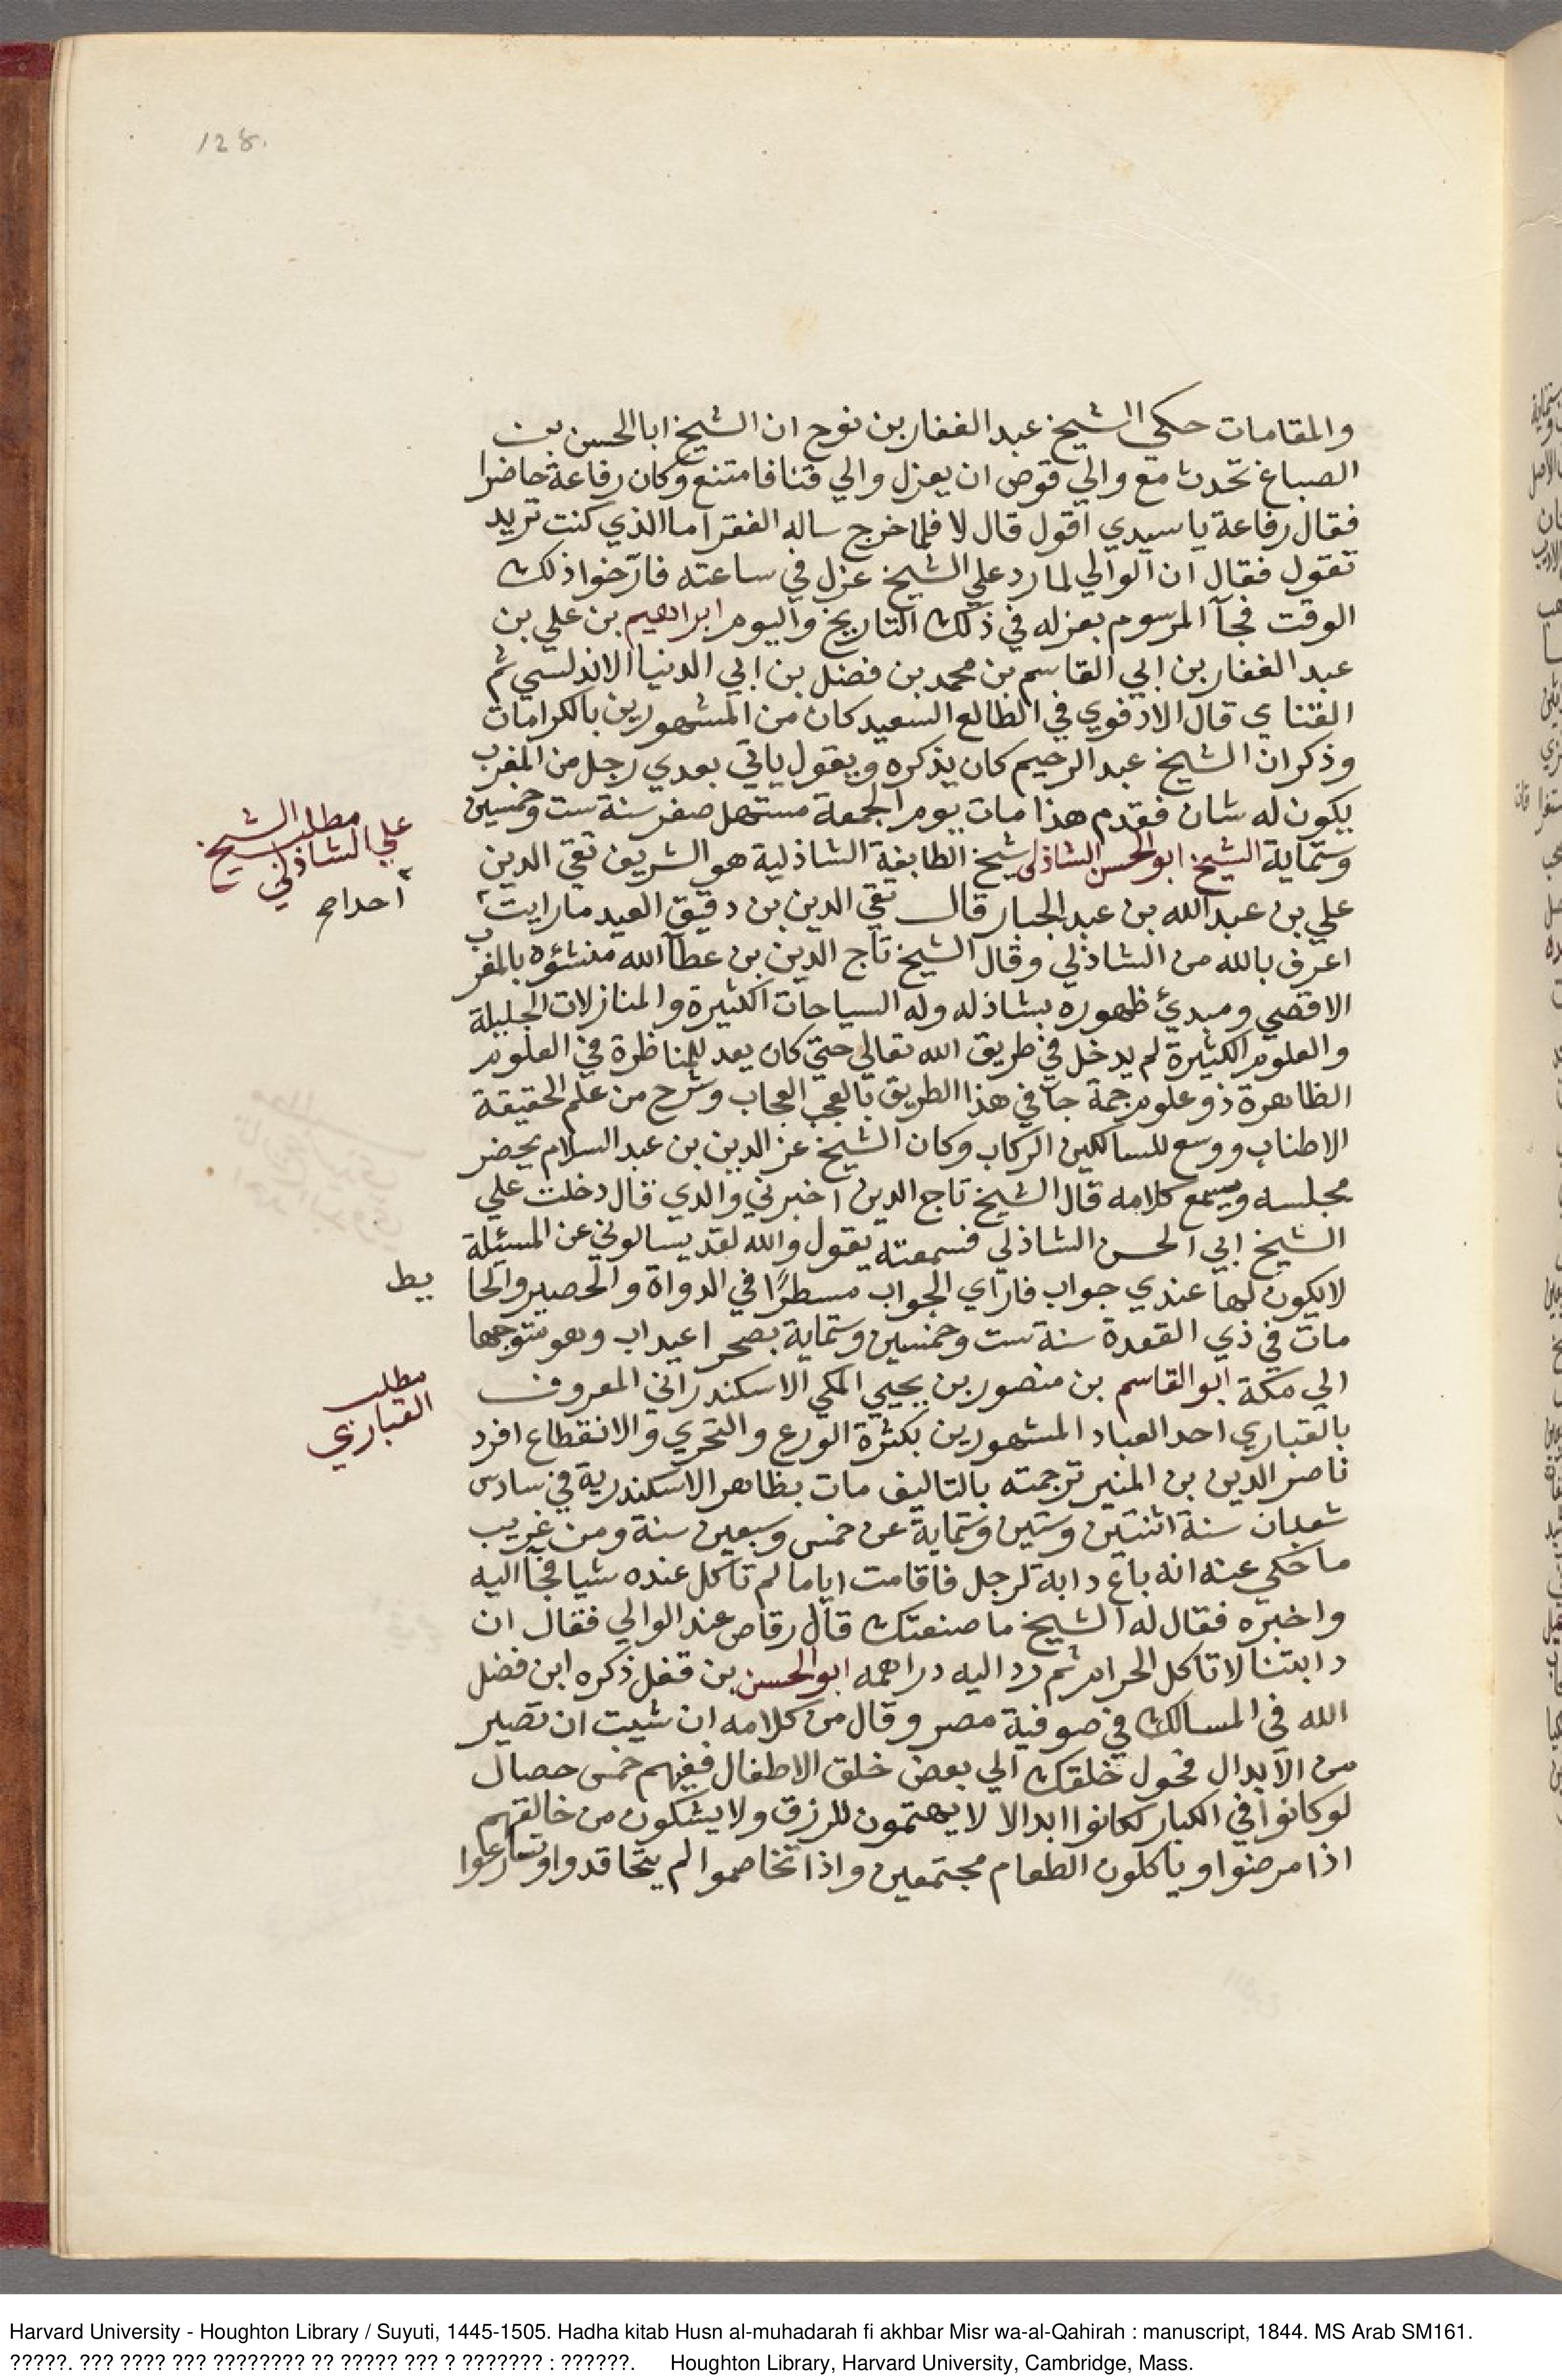 128.
والمقامات حكي الشيخ عبد الغفار بن نوح ان الشيخ ابا الحسن بن
الصباغ تحدث مع والي قوص ان يعزل والي قنا فامتنع وكان رفاعة حاضرا
فقال رفاعة يا سيدي اقول قال لا فلما خرج ساله الفقرا ما الذي كنت تريد
تقول فقال ان الوالي لما رد علي الشيخ عزل في ساعته فارخوا ذلك
الوقت فجآ المرسوم بعزله في ذلك التاريخ واليوم ابراهيم بن علي بن
عبد الغفار بن ابي القاسم بن محمد بن فضل بن ابي الدنيا الاندلسي ثم
القناي قال الادفوي في الطالع السعيد كان من المشهورين بالكرامات
وذكر ان الشيخ عبد الرحيم كان يذكره ويقول ياتي بعدي رجل من المغرب
يكون له شان فقدم هذا مات يوم الجمعة مستهل صفر سنة ست وخمسين
وستماية الشيخ ابو الحسن الشاذلي شيخ الطايفة الشاذلية هو الشريف تقي الدين
علي بن عبد الله بن عبد الجبار قال تقي الدين بن دقيق العيد ما رايت
اعرف بالله من الشاذلي وقال الشيخ تاج الدين بن عطآ الله منشؤه بالمغرب
الاقصي ومبدئ ظهوره بشاذله وله السياحات الكثيرة والمنازلات الجليلة
والعلوم الكثيرة لم يدخل في طريق الله تعالي حتي كان يعد للمناظرة في العلوم
الظاهرة ذو علوم جمة جآ في هذا الطريق بالعجب العجاب وشرح من علم الحقيقة
الاطناب ووسع للسالكين الركاب وكان الشيخ عز الدين بن عبد السلام يحضر
مجلسه ويسمع كلامه قال الشيخ تاج الدين اخبرني والدي قال دخلت علي
الشيخ ابي الحسن الشاذلي فسمعته يقول والله لقد يسالوني عن المسئلة
لا يكون لها عندي جواب فاراي الجواب مسطرًا في الدواة والحصير والحا
يط
مات في ذي القعدة سنة ست وخمسين وستماية بصحرا عيداب وهو متوجها
الي مكة ابو القاسم بن منصور بن يحيي المكي الاسكندراني المعروف
بالقباري احد العباد المشهورين بكثرة الورع والتحري والانقطاع افرد
ناصر الدين بن المنير ترجمته بالتاليف مات بظاهر الاسكندرية في سادس
شعبان سنة اثنتين وستين وستماية عن خمس وسبعين سنة ومن غريب
ما حكي عنه انه باع دابة لرجل فاقامت اياما لم تاكل عنده شيا فجآ اليه
واخبره فقال له الشيخ ما صنعتك قال رقاص عند الوالي فقال ان
دابتنا لا تاكل الحرام ثم رد اليه دراهمه ابو الحسن بن قفل ذكره ابن فضل
الله في المسالك في صوفية مصر وقال من كلامه ان شيت ان تصير
من الابدال فحول خلقك الي بعض خلق الاطفال ففيهم خمس خصال
لو كانوا في الكبار لكانوا ابدالا لا يهتمون للرزق ولا يشكون من خالقهم
اذا مرضوا وياكلون الطعام مجتمعين واذا تخاصموا لم يتحاقدوا وتسارعوا
مطلب الشيخ
علي الشاذلي
مطلب
القباري
Harvard University - Houghton Library / Suyuti, 1445-1505. Hadha kitab Husn al-muhadarah fi akhbar Misr wa-al-Qahirah : manuscript, 1844. MS Arab SM161.
?????. ??? ???? ??? ???????? ?? ????? ??? ? ??????? : ??????. Houghton Library, Harvard University, Cambridge, Mass.